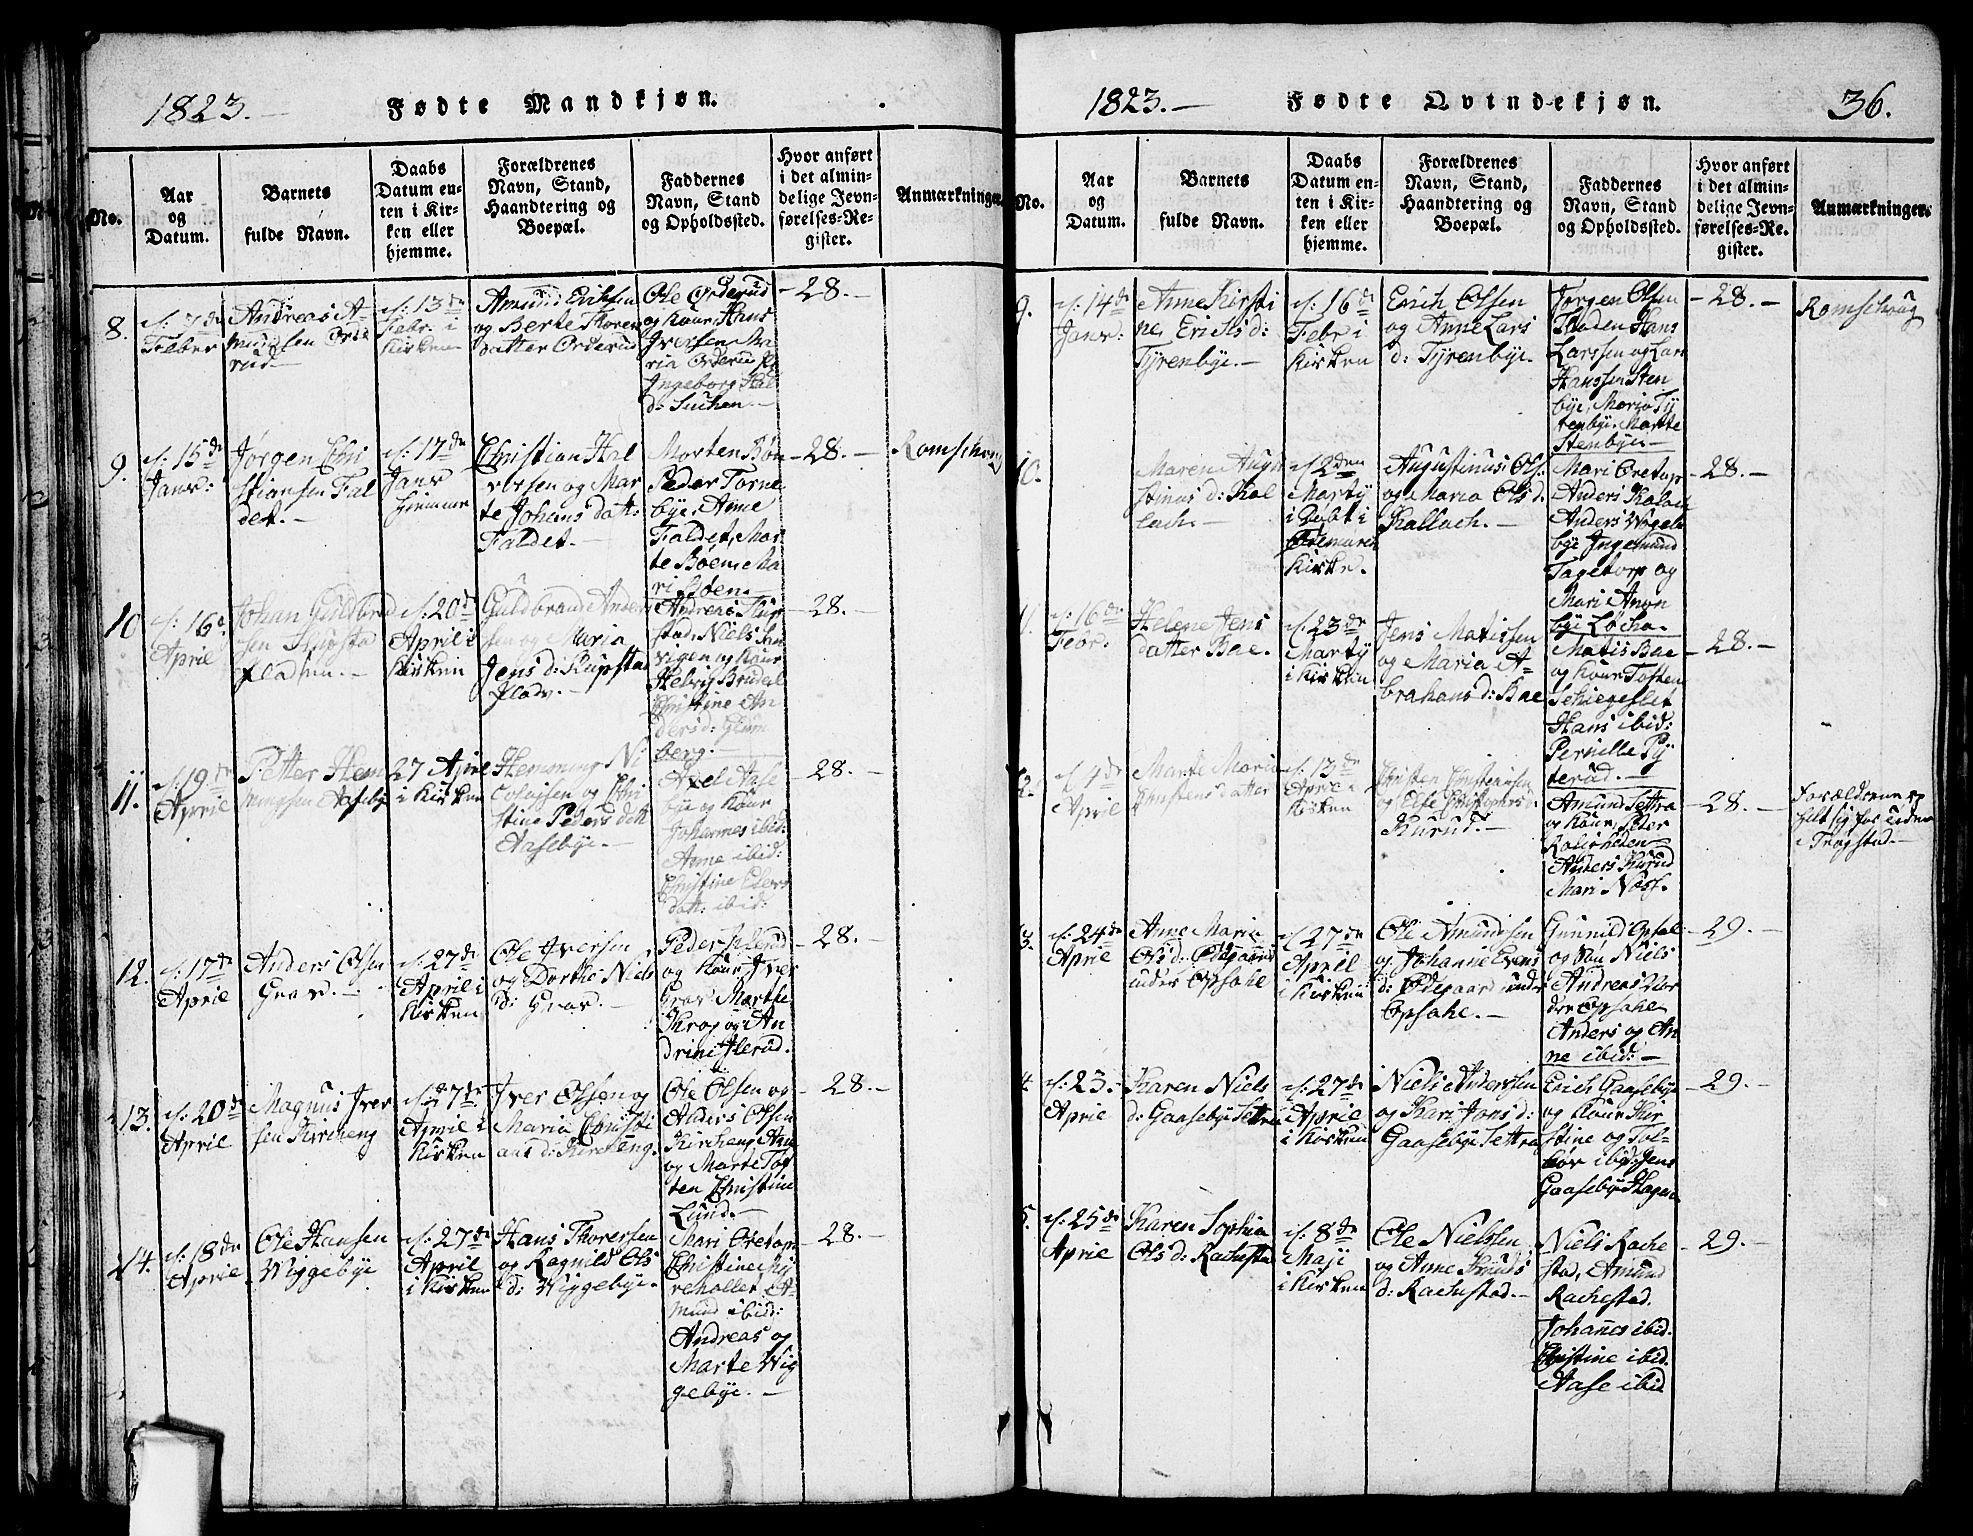 1823.—
Fødte Mandkjøn.
No.
Aar
og
Datum.
Barnets
fulde Navn.
Daabs
Datum en-
ten i Kir-
ken eller
hjemme.
Forældrenes
Navn, Stand,
Haandtering og
Boepæl.
Faddernes
Navn, Stand
og Opholdssted.
Hvor anført
i det almin-
delige Jevn-
førelses-Re-
gister.
Anmærkninger.
8.
d: 7de
Feber
Andreas A-
mundsen Orde
rud
d: 13de
Febr. i
Kirken
Amund Eriksen
og Berte Thoren
datter Orderud
Ole Orderud
og Kone, Hans
Iversen Ma
ria Orderud
Ingeborg Hal
d: Suchen.—
-28.-
9.
d: 15de
Janv:
Jørgen Chri
stiansen Fal
det.—
d: 17de
Janv
hiemme
Christian Hal
vorsen og Mar
te Johans datt:
Faldet.—
Morten Bøn
Peder Torne
bye, Anne
Faldet, Mar
te Boen, Ma
ri
-28.-
Romschoug
10
d: 16de
April
Johan Guldbrand
sen Kupsta
pladsen.—
d: 20de
April i
Kirken
Guldbrand Anders
sen og Maria
Jens d: Kupstad
pladv.—
Andreas
stad, Niels
vigen og Kone
Helvig
Christine An
ders d:
berg.—
-28.-
11.
d: 19de
April
Petter Hem
mingsen Aasebye
27 April
i Kirken
Hemming Ni
colaisen og Chri
stine Peders datt
Aasebye.—
Axel Aase
bye og Kone
Johannes ibid:
Anne ibid:
Christine Elers
datt: ibid:
-28.-
12.
d: 17de
April
Anders Olsen
Grav.—
d: 27de
April i
Kirken
Ole Iversen
og Dorthe Niels
d: Grav.—
Peder Ilerud
og Kone, Iver
Grav Marthe
Krog og An
drine Ilerud.
-28.-
13.
d: 20de
April
Magnus Iver
sen Kircheng
d: 27de
April i
Kirken
Iver Olsen og
Maria Christi
ans d: Kircheng.
Ole Olsen og
Anders Olsen
Kircheng Ane
og Marte Tof
ten Christine
Lund.—
-28.-
14.
d: 18de
April
Ole Hansen
Wiggebye
d: 27de
April
i Kirken
Hans Thoresen
og Ragnild Ols
d: Wiggebye.
Mari Oretorp
Christine
rehollet A-
mund ibid:
Andreas og
Marte Wig
gebye.—
-28.-
1823.—
Fødte Qvindekjøn.
36.
No.
Aar
og
Datum.
Barnets
fulde Navn.
Daabs
Datum en-
ten i Kir-
ken eller
hjemme.
Forældrenes
Navn, Stand,
Haandtering og
Boepæl.
Faddernes
Navn, Stand
og Opholdssted.
Hvor anført
i det almin-
delige Jevn-
førelses-Re-
gister.
Anmærkninger.
9.
d: 14de
Janv:
Anne Kirsti
ne, Erichs d:
Tyrenbye.—
d: 16de
Febr i
Kirken
Erich Olsen
og Anne Lars
d: Tyrenbye.
Jørgen Olsen
Haden Hans
Larssen og Lars
Hanssen Sten
bye, Maria Ty
renbye, Marte
Stenbye.—
-28.-
Romschoug
10.
Maren Augu
stinus d: Kol
lach.—
d 2den
Marty
i Døbt i
Øremarck
Kirke.
Augustinus Ols:
og Maria Ols d.
Kallach.—
Mari Oretorp
Anders Kolach
Anders Wiggele
bye Ingemund
Tagetorp og
Mari Anon
bye Løcha.
-28.-
11.
d: 16de
Febr:
Helene Jens
datter Bae.
d: 23de
Marty
i Kirken
Jens Matissen
og Maria A-
brahams d: Bae
Matis Bae
og Kone Toften
Schiegeslet
Hans ibid:
Pernille Ty
terud.—
-28.-
12.
d 4de
April
Marte Maria
Christens datter
d: 13de
April i
Kirken
Christen Christensen
og Else Christophers d:
Kurud.—
Amund Settra
og Kone, Peter
Kolerheden
Anders Kurud
Mari Næss.
-28.-
Forældrene op
holt sig for tiden
i Trøgstad.—
13.
d: 24de
April
Anne Maria
Ols d: Ødegaard
under Opsahl
d: 27de
April
i Kirken
Ole Amundsen
og Johanne Evens
d: Ødegaard under
Opsahe.—
Gunnild Opsal
og Søn Niels
Andreas Nor
dre Opsahe
Anders og An
ne ibid:—
-29.-
14.
d: 23.
April
Karen Niels
d: Gaasebye Settra
d: 27de
April
i Kirken
Niels Anderssen
og Kari Jons d:
Gaasebye Settra
Erich Gaasebye
og Kone Kir
stine og Tol-
lør ibid: Jens
Gaasebye Hagen
-29.-
15.
d: 25de
April
Karen Sophia
Ols d: Rachestad
d: 8de
Maji
i Kirken
Ole Nielssen
og Anne Knuds
d: Rachestad.—
Niels Rache
stad, Amund
Rachestad.
Johanes ibid.
Christine ibid.
Aase ibid
-29.-